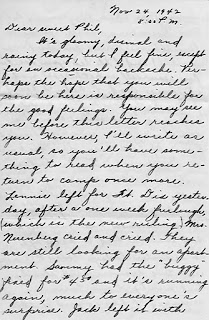 Nov 24, 1942
8:00 P.M.
Dear sweet Phil,
It's gloomy, dismal and
rainy today, but I feel fine, except
for an occasional backache. Per-
haps the hope that you will
soon be here is responsible for
the good feelings. You may see
me before this letter reaches
you. However, I'll write as
usual, so you'll have some-
thing to read when you re-
turn to camp once more.
Lennie left for Ft. Dix yester-
day, after a one week furlough,
(which is the new ruling) Mrs.
Nurnberg cried and cried. They
are still looking for an apart-
ment. Sammy had the "buggy
fixed for $4.50 and it's running
again, much to everyone's
surprise. Jack left is with